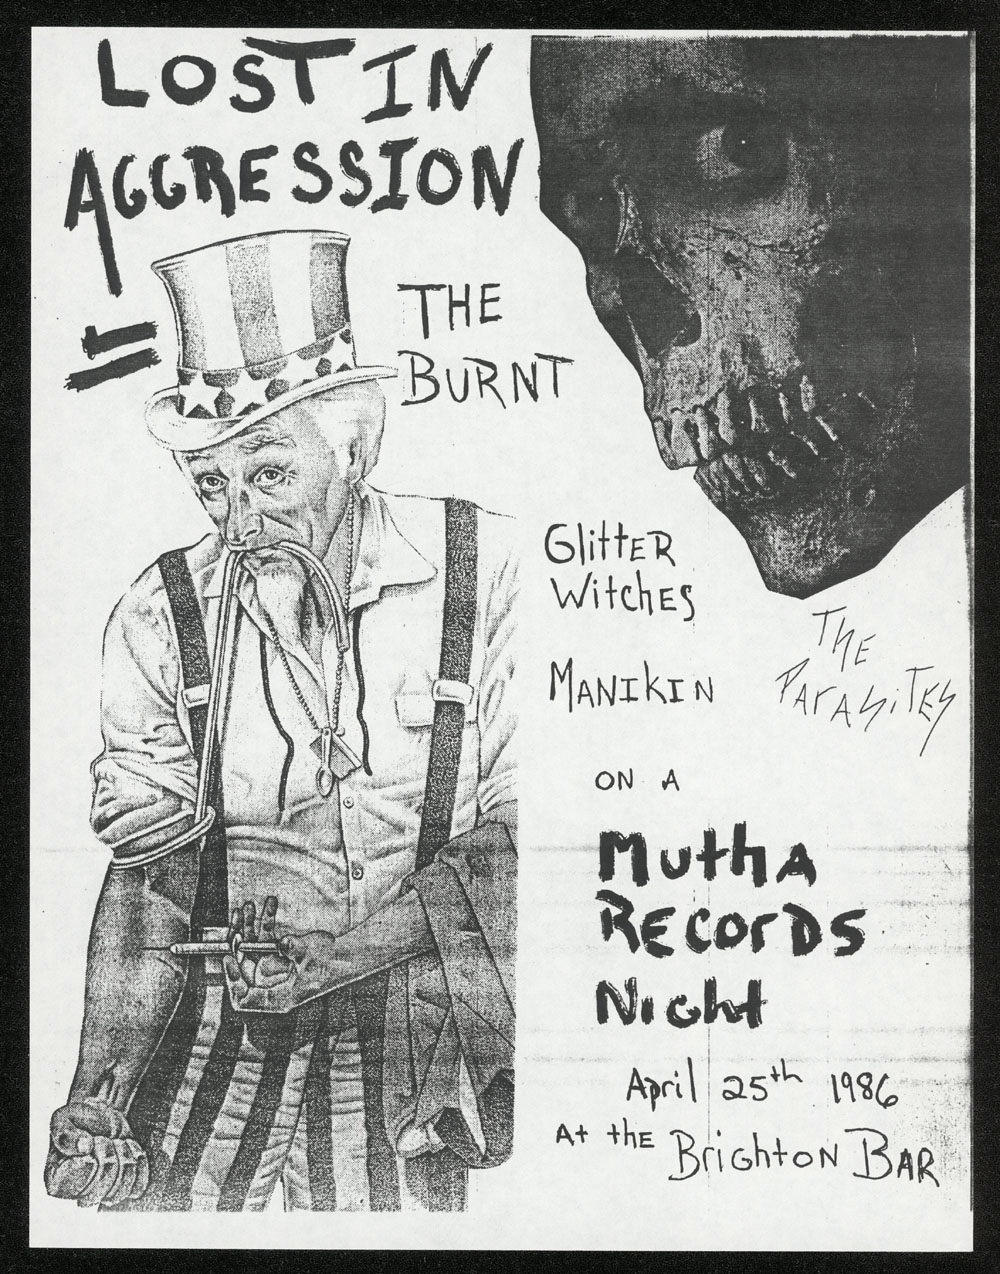 LOST IN
AGGRESSION
THE
BURNT
GlittER
WitchES
MANIKIN
THE
PARASiTES
ON A
MuthA
RECorDS
Night
April 25th 1986
At the Brighton BAR